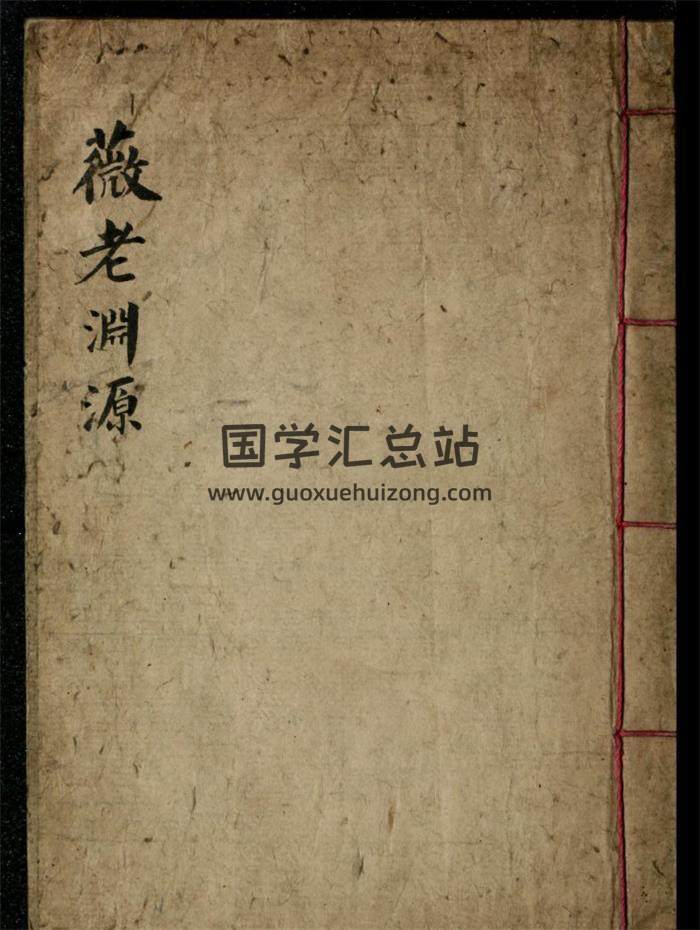 薇老淵源
国学汇总站
www.guoxuehuizong.com